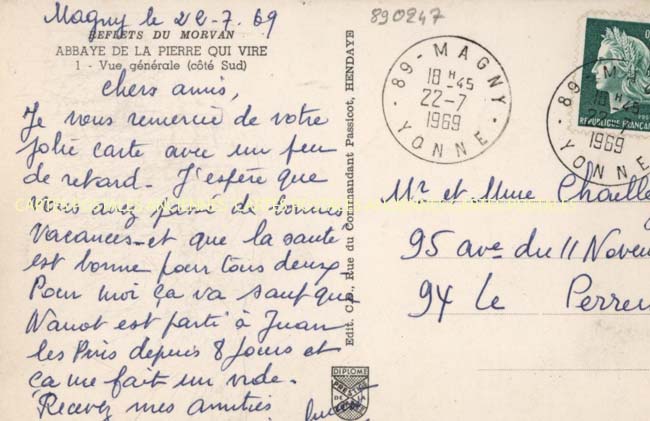 Magny le 22-7.69
REFLETS DU MORVAN
ABBAYE DE LA PIERRE QUI VIRE
1 - Vue générale (côté Sud)
chers amis,
Je vous remercie de votre
jolie carte avec un peu
de retard. J'espère que
vous avez passé de bonnes
Vacances et que la santé
est bonne pour tous deux
Pour moi ça va sauf que
Nanot est parti à Juan
les Pins depuis 8 jours et
ça me fait un vide.
Recevez mes amitiés
Edit. C.D., Rue du Commandant Passicot, HENDAYE
DIPLOME
PRESTIGE
DE LA
890247
89 - MAGNY
18 H 45
22-7
1969
YONNE
89 - MA
18 H
1969
YONNE
REPUBLIQUE FRANÇAISE
Mr et Mme
95 ave du 11 Novem
94 Le Perreu